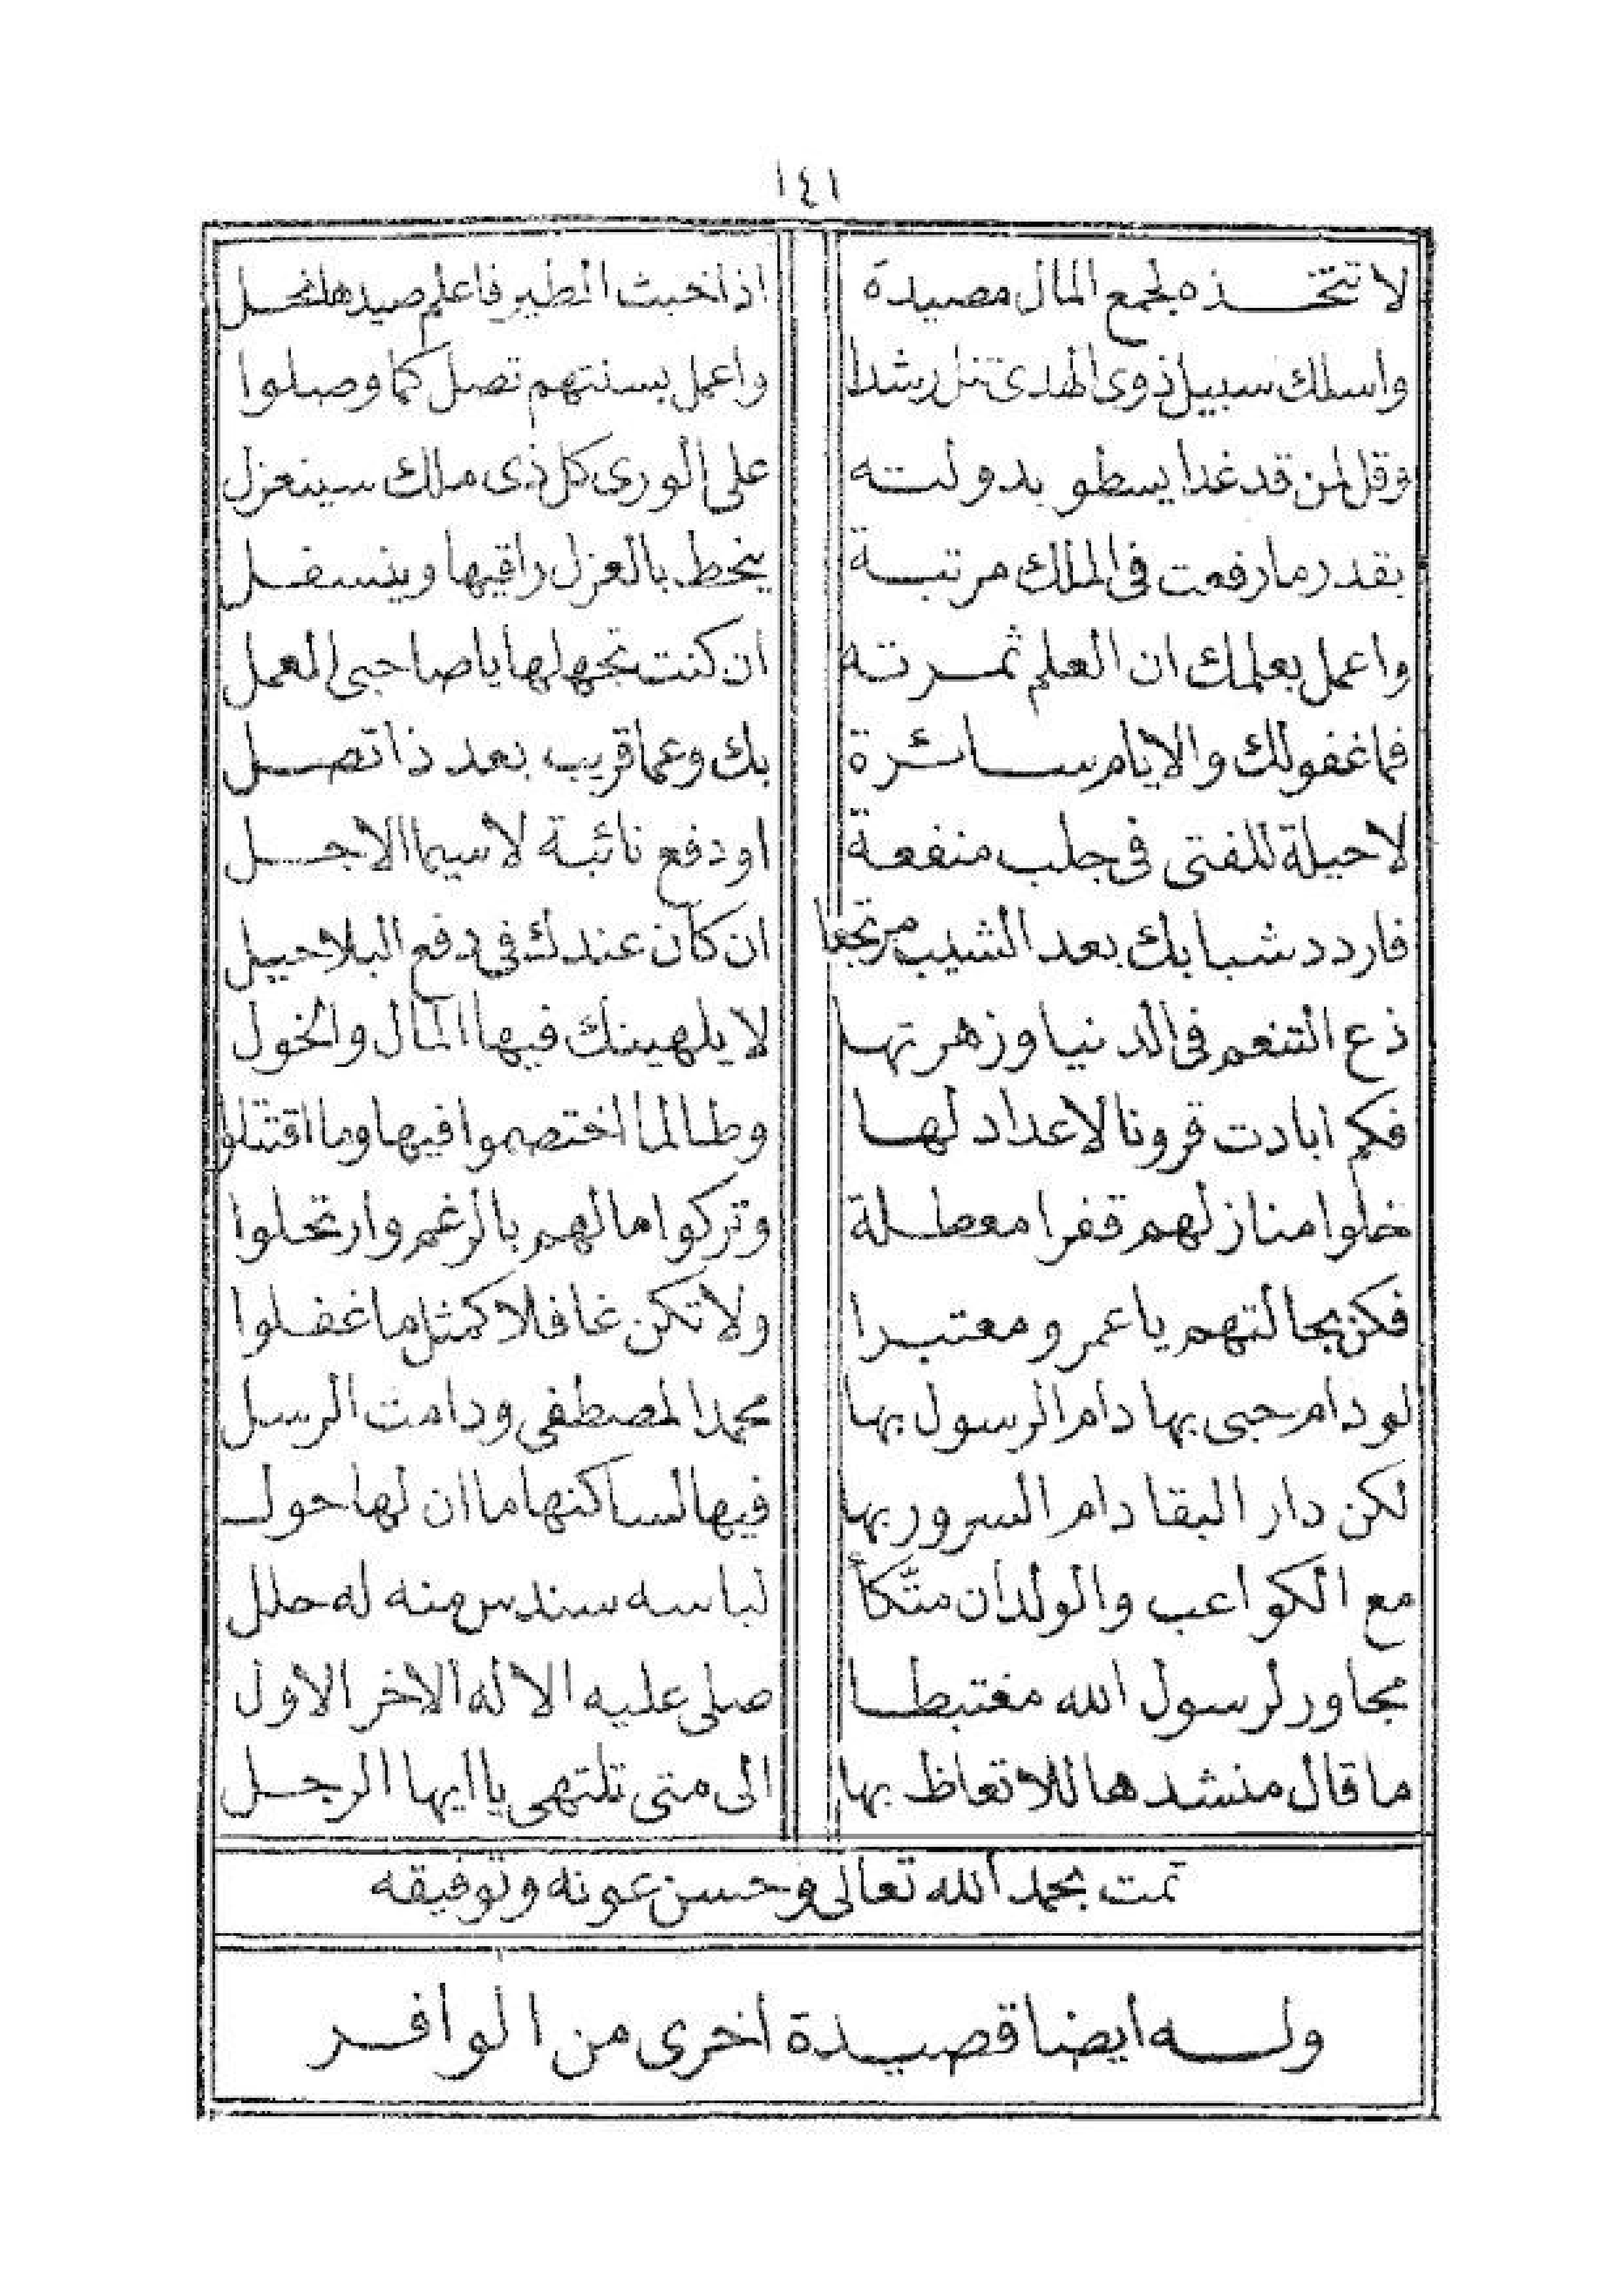 ١٤١
لا تتخذه لجمع المال مصيدة اذا خبث الطير فاعلم صيدها
واسلك سبيل ذوى الهدى تنل رشدا واعمل بسنتهم تصل كما وصلوا
وقل لمن قد غدا يسطو بدولته على الورى كل ذى ملك سينعزل
بقدر ما رفعت فى الملك مرتبة ينحط بالعزل راقيها وينسفل
واعمل بعلمك ان العلم ثمرته ان كنت تجهلها يا صاحبى العمل
فما غفولك والايام سائرة بك وعما قريب بعد ذا تصل
لا حيلة للفتى فى جلب منفعة او دفع نائبة لا سيما الاجل
فاردد شبابك بعد الشيب مرتجعا ان كان عندك فى دفع البلا حيل
ذع التنعم فى الدنيا وزهرتها لا يلهينك فيها المال والخول
فكم ابادت قرونا لا عداد لها وطالما اختصموا فيها وما اقتتلوا
خلوا منازلهم قفرا معطلة وتركوا مالهم بالرغم وارتحلوا
فكن بحالتهم يا عمرو معتبرا ولا تكن غافلا كمثل ما غفلوا
لو دام حى بها دام الرسول بها محمد المصطفى ودامت الرسل
لكن دار البقا دام السرور بها فيها لساكنها ما ان لها حول
مع الكواعب والولدان متّكأ لباسه سندس منه له حلل
مجاور لرسول الله مغتبطا صلى عليه الاله الاخر الاول
ما قال منشدها للاتعاظ بها الى متى تلتهى يا ايها الرجل
تمت بحمد الله تعالى وحسن عونه وتوفيقه
وله ايضا قصيدة اخرى من الوافر